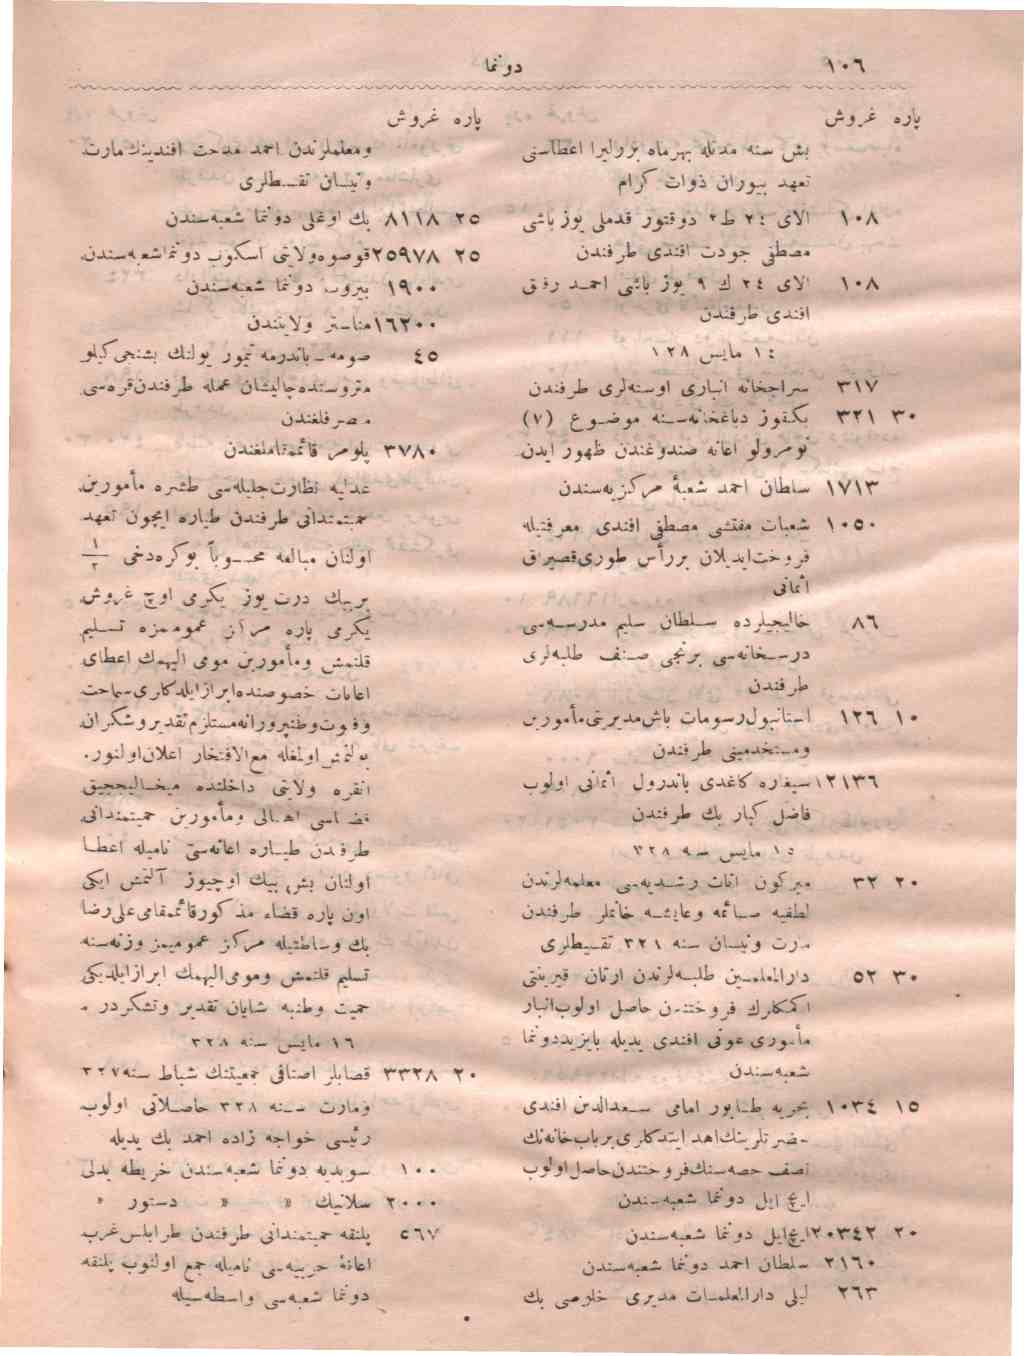 ١٠٦ دونما
پاره غروش
بش سنه مدتله بهرماه برر ليرا اعطاسنى
تعهد بيوران ذوات كرام
١٠٨ الاى ٢٤ ط ٢ دوقتور قدملى يوز باشى
مصطفى جودت افندى طرفندن
١٠٨ الاى ٢٤ ك ٩ يوز باشى احمد رفيق
افندى طرفندن
١٤ مايس ٣٢٨
٣١٧ سراجخانه انبارى اوسته لرى طرفندن
٣٠ ٣٢١ بكقوز دباغخانه سنه موضوع (٧)
نومرولو اعانه صندوغندن ظهور ايدن
١٧١٣ سلطان احمد شعبهٔ مركزيه سندن
١٠٥٠ شعبات مفتشى مصطفى افندى معرفتيله
فروخت ايديلان بررأس طورى قصيراق
اثمانى
٨٦ خاليجيلرده سلطان سليم مدرسه سى
درسخانه سى برنجى صنف طلبه لرى
طرفندن
١٠ ١٢٦ استانبول رسومات باش مديريتى مأمورين
ومستخدمينى طرفندن
١٢١٣٦ سيغاره كاغدى باندرول اثمانى اولوب
فاضل كبار بك طرفندن
١٥ مايس سنه ٣٢٨
٢٠ ٣٢ ميركون اناث رشديه سى معلمه لرندن
لطفيه صائمه وعايشه خانملر طرفندن
مارت ونيسان سنه ٣٢١ تقسيطلرى
٣٠ ٥٢ دارالمعلمين طلبه لرندن ارتان قيرينتى
اكمكلرك فروختندن حاصل اولوب انبار
مأمورى عونى افندى يديله بايزيد دونما
شعبه سندن
١٥ ١٠٣٤ بحريه طابور امامى سعدالدين افندى
حضرتلرينك اهدا ايتدكلرى برباب خانه نك
نصف حصه سنك فروختندن حاصل اولوب
ايچ ايل دونما شعبه سندن
٢٠ ٢٠٣٤٢ ايچ ايل دونما شعبه سندن
٢١٦٠ سلطان احمد دونما شعبه سندن
٢٦٣ ليلى دارالمعلمات مديرى خلوصى بك
پاره غروش
ومعلملرندن احمد مدحت افندينك مارت
ونيسان تقسطلرى
٢٥ ٨١١٨ بك اوغلى دونما شعبه سندن
٢٥ ٢٥٩٧٨ قوصوه ولايتى اسكوب دونما شعبه سندن
١٩٠٠ بيروت دونما شعبه سندن
١٦٢٠٠ مناستر ولايتندن
٤٥ صومه ـ باندرمه تيمور يولنك بشنجى كيلو
متروسنده چاليشان عمله طرفندن قره سى
متصرفلغندن
٣٧٨٠ پلومر قائممقاملغندن
عدليه نظارت جليله سى طشره مأمورين
حميتمندانى طرفندن طياره ايچون تعهد
اولنان مبالغه محسوباً بوكره دخى ١/٢
بربيك درت يوز يكرمى اوچ غروش
يكرمى پاره مركز عموميمزه تسليم
قلنمش ومأمورين مومى اليهمك اعطاى
اعانات خصوصنده ابراز ايلدكلرى سماحت
وفتوت وطنپرورانه مستلزم تقدير وشكران
بولنمش اولمغله مع الافتخار اعلان اولنور.
انقره ولايتى داخلنده ميخاليچجيق
قضاسى اهالى ومأمورين حميتمندانى
طرفندن طياره اعانه سى ناميله اعطا
اولنان بش بيك اوچيوز آلتمش ايكى
اون پاره قضاء مذكور قائممقامى على رضا
بك وساطتيله مركز عموميمز وزنه سنه
تسليم قلنمش ومومى اليهمك ابراز ايلديكى
حميت وطنيه شايان تقدير وتشكردر .
١٦ مايس سنه ٣٢٨
٢٠ ٣٣٢٨ قصابلر اصنافى جمعيتنك شباط سنه ٣٢٧
ومارت سنه ٣٢٨ حاصلاتى اولوب
رئيسى خواجه زاده احمد بك يديله
١٠٠ سويديه دونما شعبه سندن خريطه بدلى
٢٠٠٠ سلانيك » » دستور »
٥٦٧ پلنقه حميتمندانى طرفندن طرابلس غرب
اعانهٔ حربيه سى ناميله جمع اولنوب پلنقه
دونما شعبه سى واسطه سيله